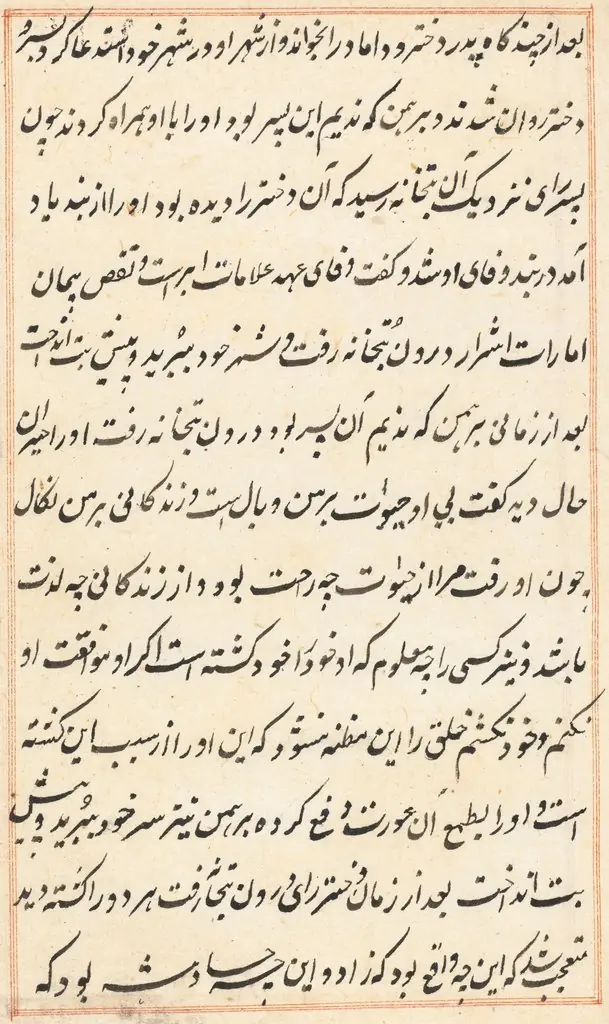 بعد از چند گاه پدر دختر و داماد را بخواند و از شهر او در شهر خود استدعا کرد پسر و
دختر روان شدند و برهمن که ندیم این پسر بود او را با او همراه کردند چون
پسر رای نزدیک آن بتخانه رسید که آن دختر را دیده بود او را از بند یاد
آمد در بند وفای او شد و گفت وفای عهد علامات ابرار است و نقص پیمان
امارات اشرار درون بتخانه رفت و سر خود ببرید و پیش بت انداخت
بعد از زمانی برهمن که ندیم آن پسر بود درون بتخانه رفت او را همبران
حال دید گفت بی او حیوات برهمن وبال است و زندگانی برهمن نکال
چون او رفت مرا از حیوات چه راحت بود و از زندگانی چه لذت
باشد و نیز کسی را چه معلوم که او خود را خود کشته است اگر او موافقت او
نکنم و خود نکشم خلق را این مظنه شود که این او را از سبب این کشته
است و او را بطمع آن عورت دفع کرده برهمن نیز سر خود ببرید و پیش
بت انداخت بعد از زمان دختر رای درون بتخانه رفت هر دو را کشته دید
متعجب شد که این چه واقع بود که زاد و این چه حادثه بود که